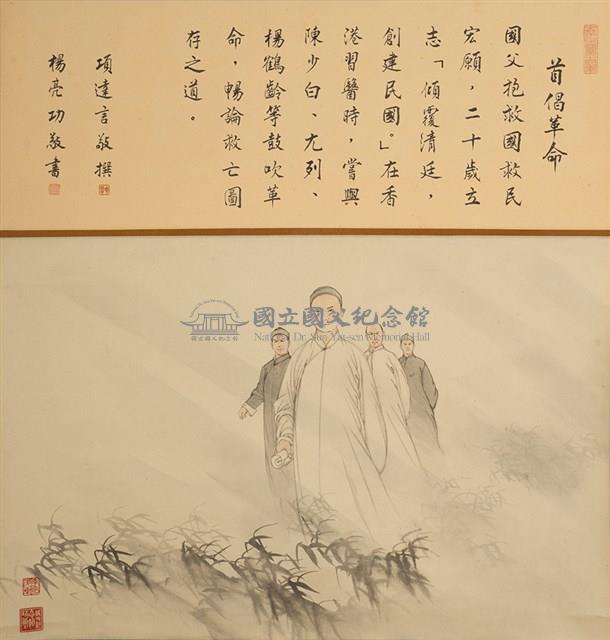 首倡革命
國父抱救國救民
宏願，二十歲立
志「傾覆清廷，
創建民國。」在香
港習醫時，嘗與
陳少白、尤列、
楊鶴齡等鼓吹革
命，暢論救亡圖
存之道。
項達言敬撰
楊亮功敬書
國立國父紀念館
National Dr. Sun Yat-sen Memorial Hall
國立國父紀念館